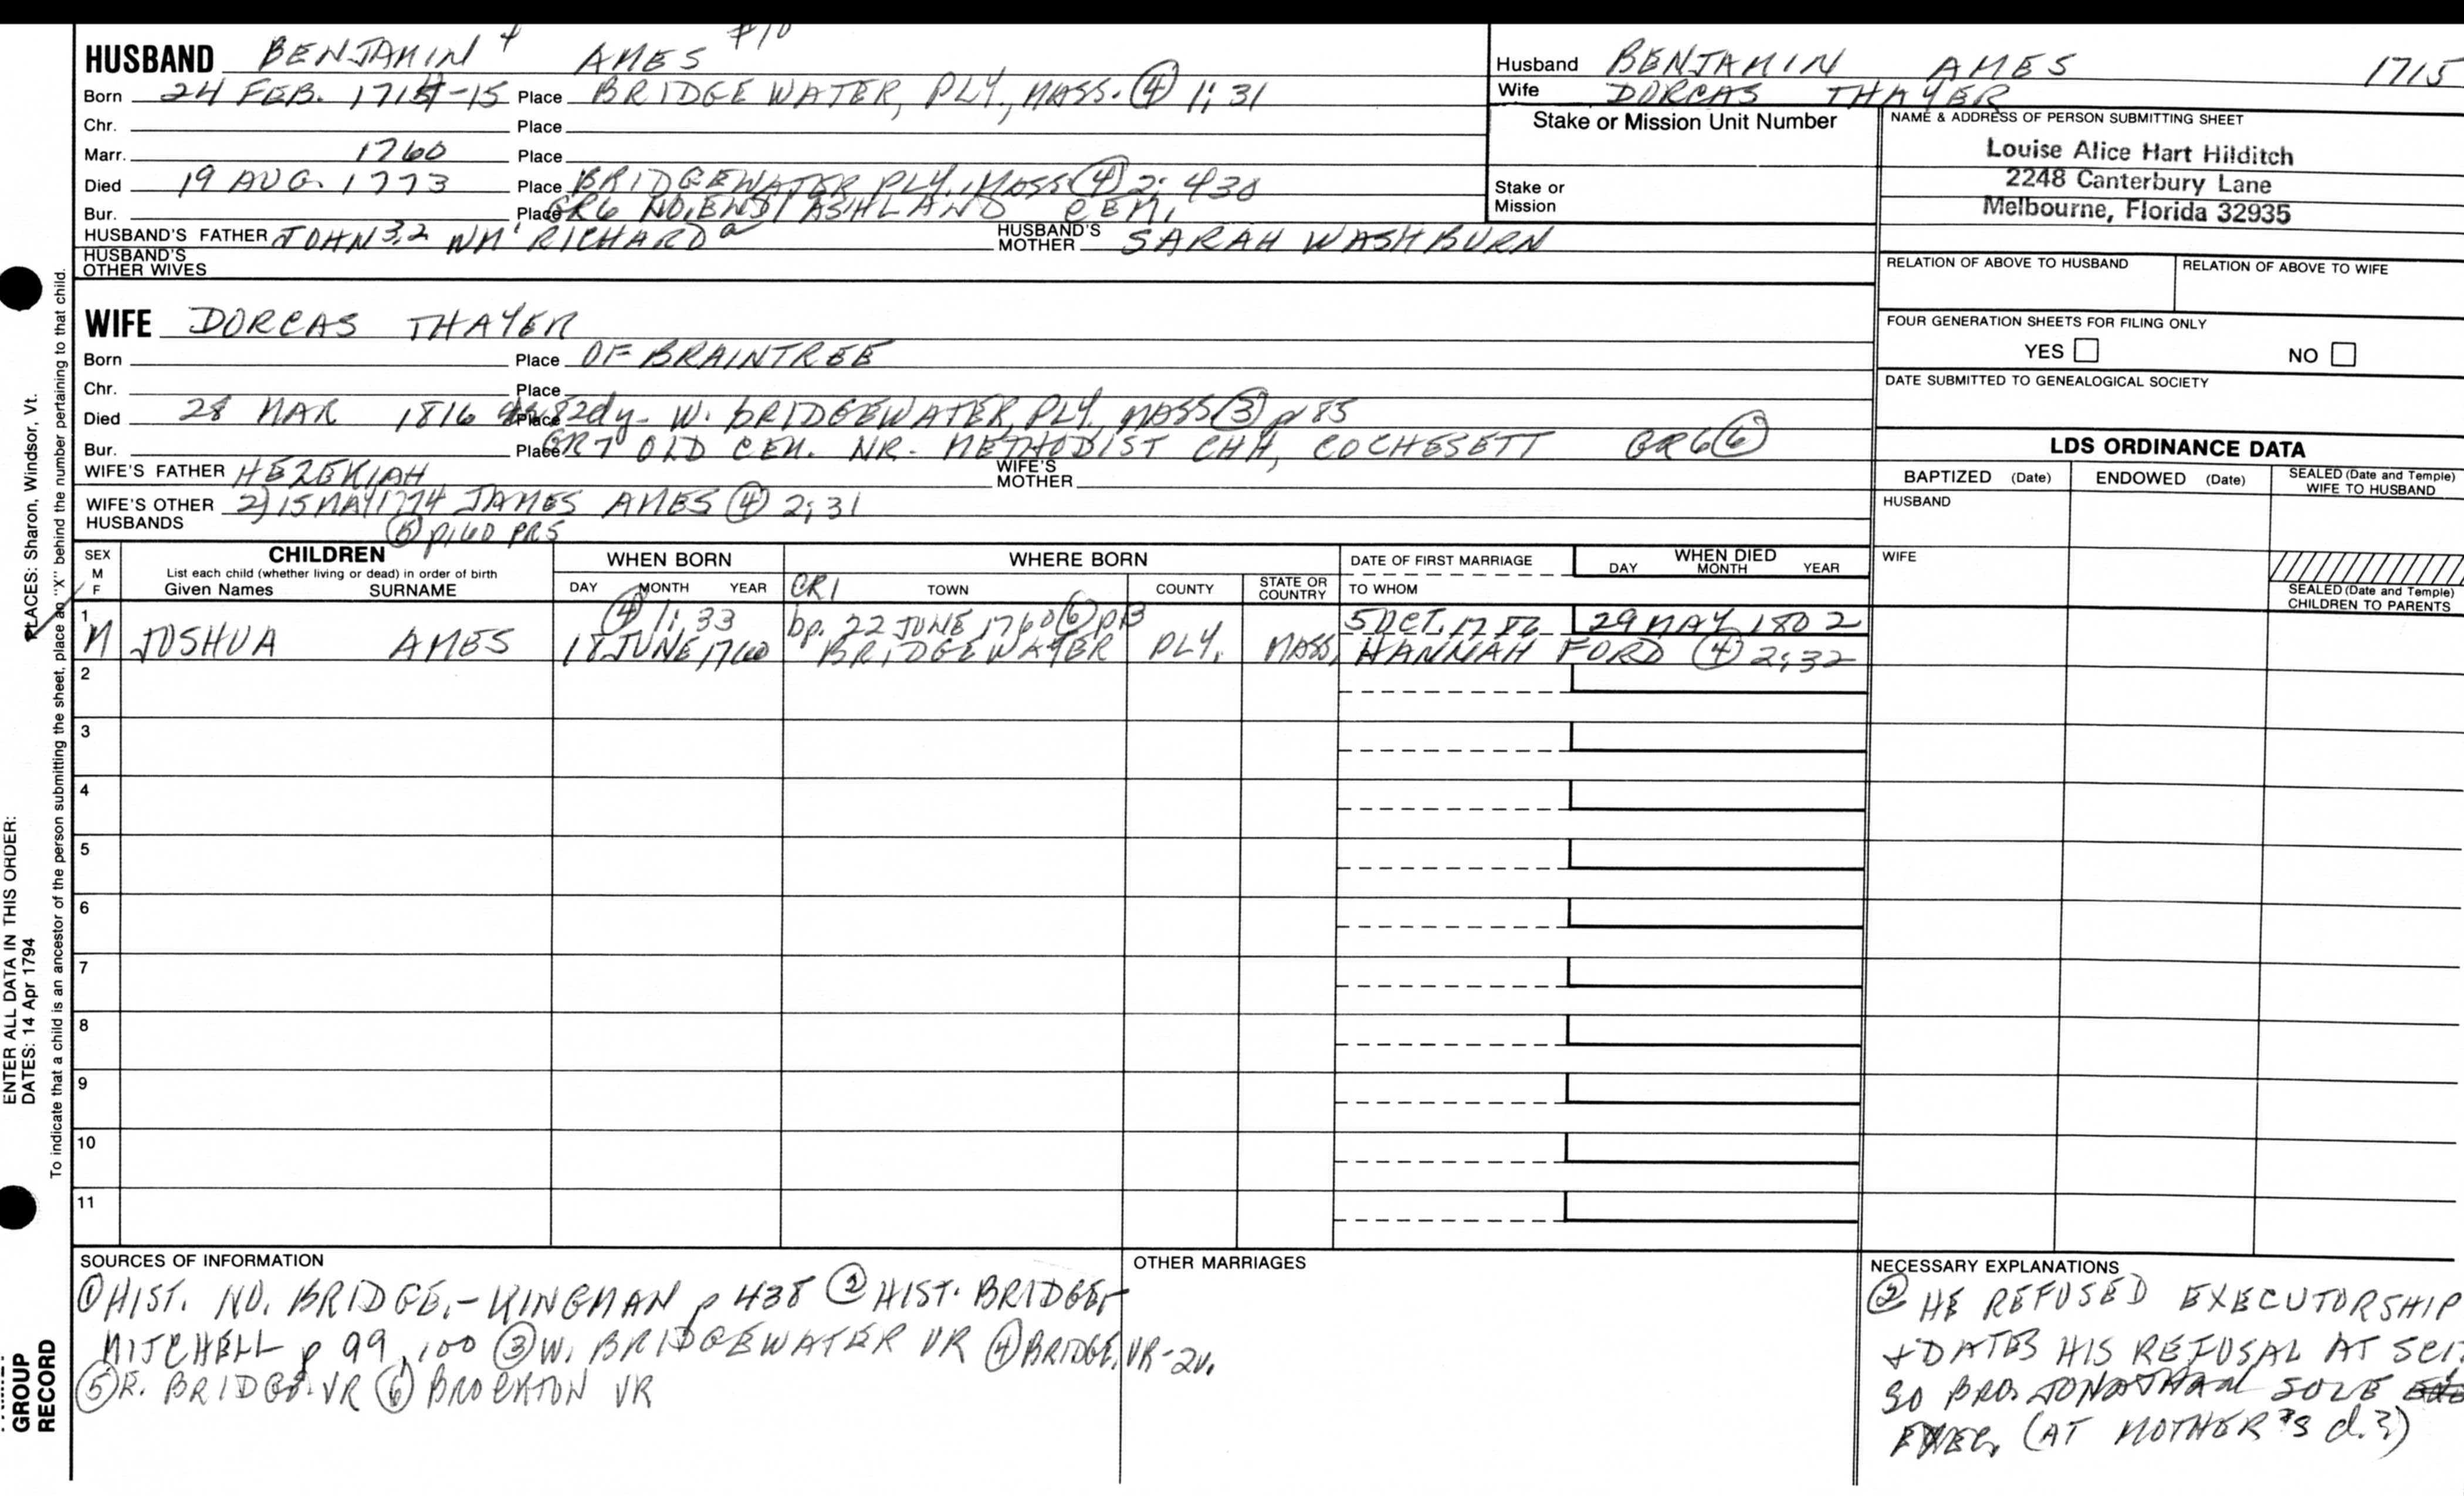 HUSBAND BENJAMIN 4 AMES #10
Born 24 FEB. 1714-15 Place BRIDGEWATER, PLY., MASS. ④ 1; 31
Chr. Place
Marr. 1760 Place
Died 19 AUG. 1773 Place BRIDGEWATER PLY., MASS ④ 2; 430
Bur. Place GR6 NO. END, ASHLAND CEM,
HUSBAND'S FATHER JOHN 3,2 WM' RICHARD a HUSBAND'S MOTHER SARAH WASHBURN
HUSBAND'S OTHER WIVES
Husband BENJAMIN AMES 1715
Wife DORCAS THAYER
Stake or Mission Unit Number
Stake or Mission
NAME & ADDRESS OF PERSON SUBMITTING SHEET
Louise Alice Hart Hilditch
2248 Canterbury Lane
Melbourne, Florida 32935
RELATION OF ABOVE TO HUSBAND RELATION OF ABOVE TO WIFE
FOUR GENERATION SHEETS FOR FILING ONLY
YES NO
DATE SUBMITTED TO GENEALOGICAL SOCIETY
WIFE DORCAS THAYER
Born Place OF BRAINTREE
Chr. Place
Died 28 MAR 1816 Place 82dy- W. BRIDGEWATER, PLY. MASS ③ p 85
Bur. Place GR7 OLD CEM. NR. METHODIST CHH, COCHESETT GR6 ⑥
WIFE'S FATHER HEZEKIAH WIFE'S MOTHER
WIFE'S OTHER HUSBANDS 2) 15 MAY 1774 JAMES AMES ④ 2; 31
⑤ p160 PR5
LDS ORDINANCE DATA
BAPTIZED (Date) ENDOWED (Date) SEALED (Date and Temple) WIFE TO HUSBAND
HUSBAND
WIFE
SEALED (Date and Temple) CHILDREN TO PARENTS
SEX M F
CHILDREN
List each child (whether living or dead) in order of birth
Given Names SURNAME
WHEN BORN
DAY MONTH YEAR
WHERE BORN
CR1 TOWN COUNTY STATE OR COUNTRY
DATE OF FIRST MARRIAGE
TO WHOM
WHEN DIED
DAY MONTH YEAR
1 ④ 1; 33 bp. 22 JUNE 1760 ⑥ p13 5 OCT. 1786 29 MAY 1802
M JOSHUA AMES 18 JUNE 1760 BRIDGEWATER PLY. MASS, HANNAH FORD ④ 2; 32
2
3
4
5
6
7
8
9
10
11
SOURCES OF INFORMATION
① HIST. NO. BRIDGE.-KINGMAN p 438 ② HIST. BRIDGE-
MITCHELL p 99, 100 ③ W. BRIDGEWATER VR ④ BRIDGE. VR-2v.
⑤ E. BRIDGE. VR ⑥ BROCKTON VR
OTHER MARRIAGES
NECESSARY EXPLANATIONS
② HE REFUSED EXECUTORSHIP
+ DATES HIS REFUSAL AT SCIT
SO BRO. JONATHAN SOLE
EXEC. (AT MOTHER'S d.?)
PLACES: Sharon, Windsor, Vt.
To indicate that a child is an ancestor of the person submitting the sheet, place an "X" behind the number pertaining to that child.
ENTER ALL DATA IN THIS ORDER:
DATES: 14 Apr 1794
GROUP
RECORD